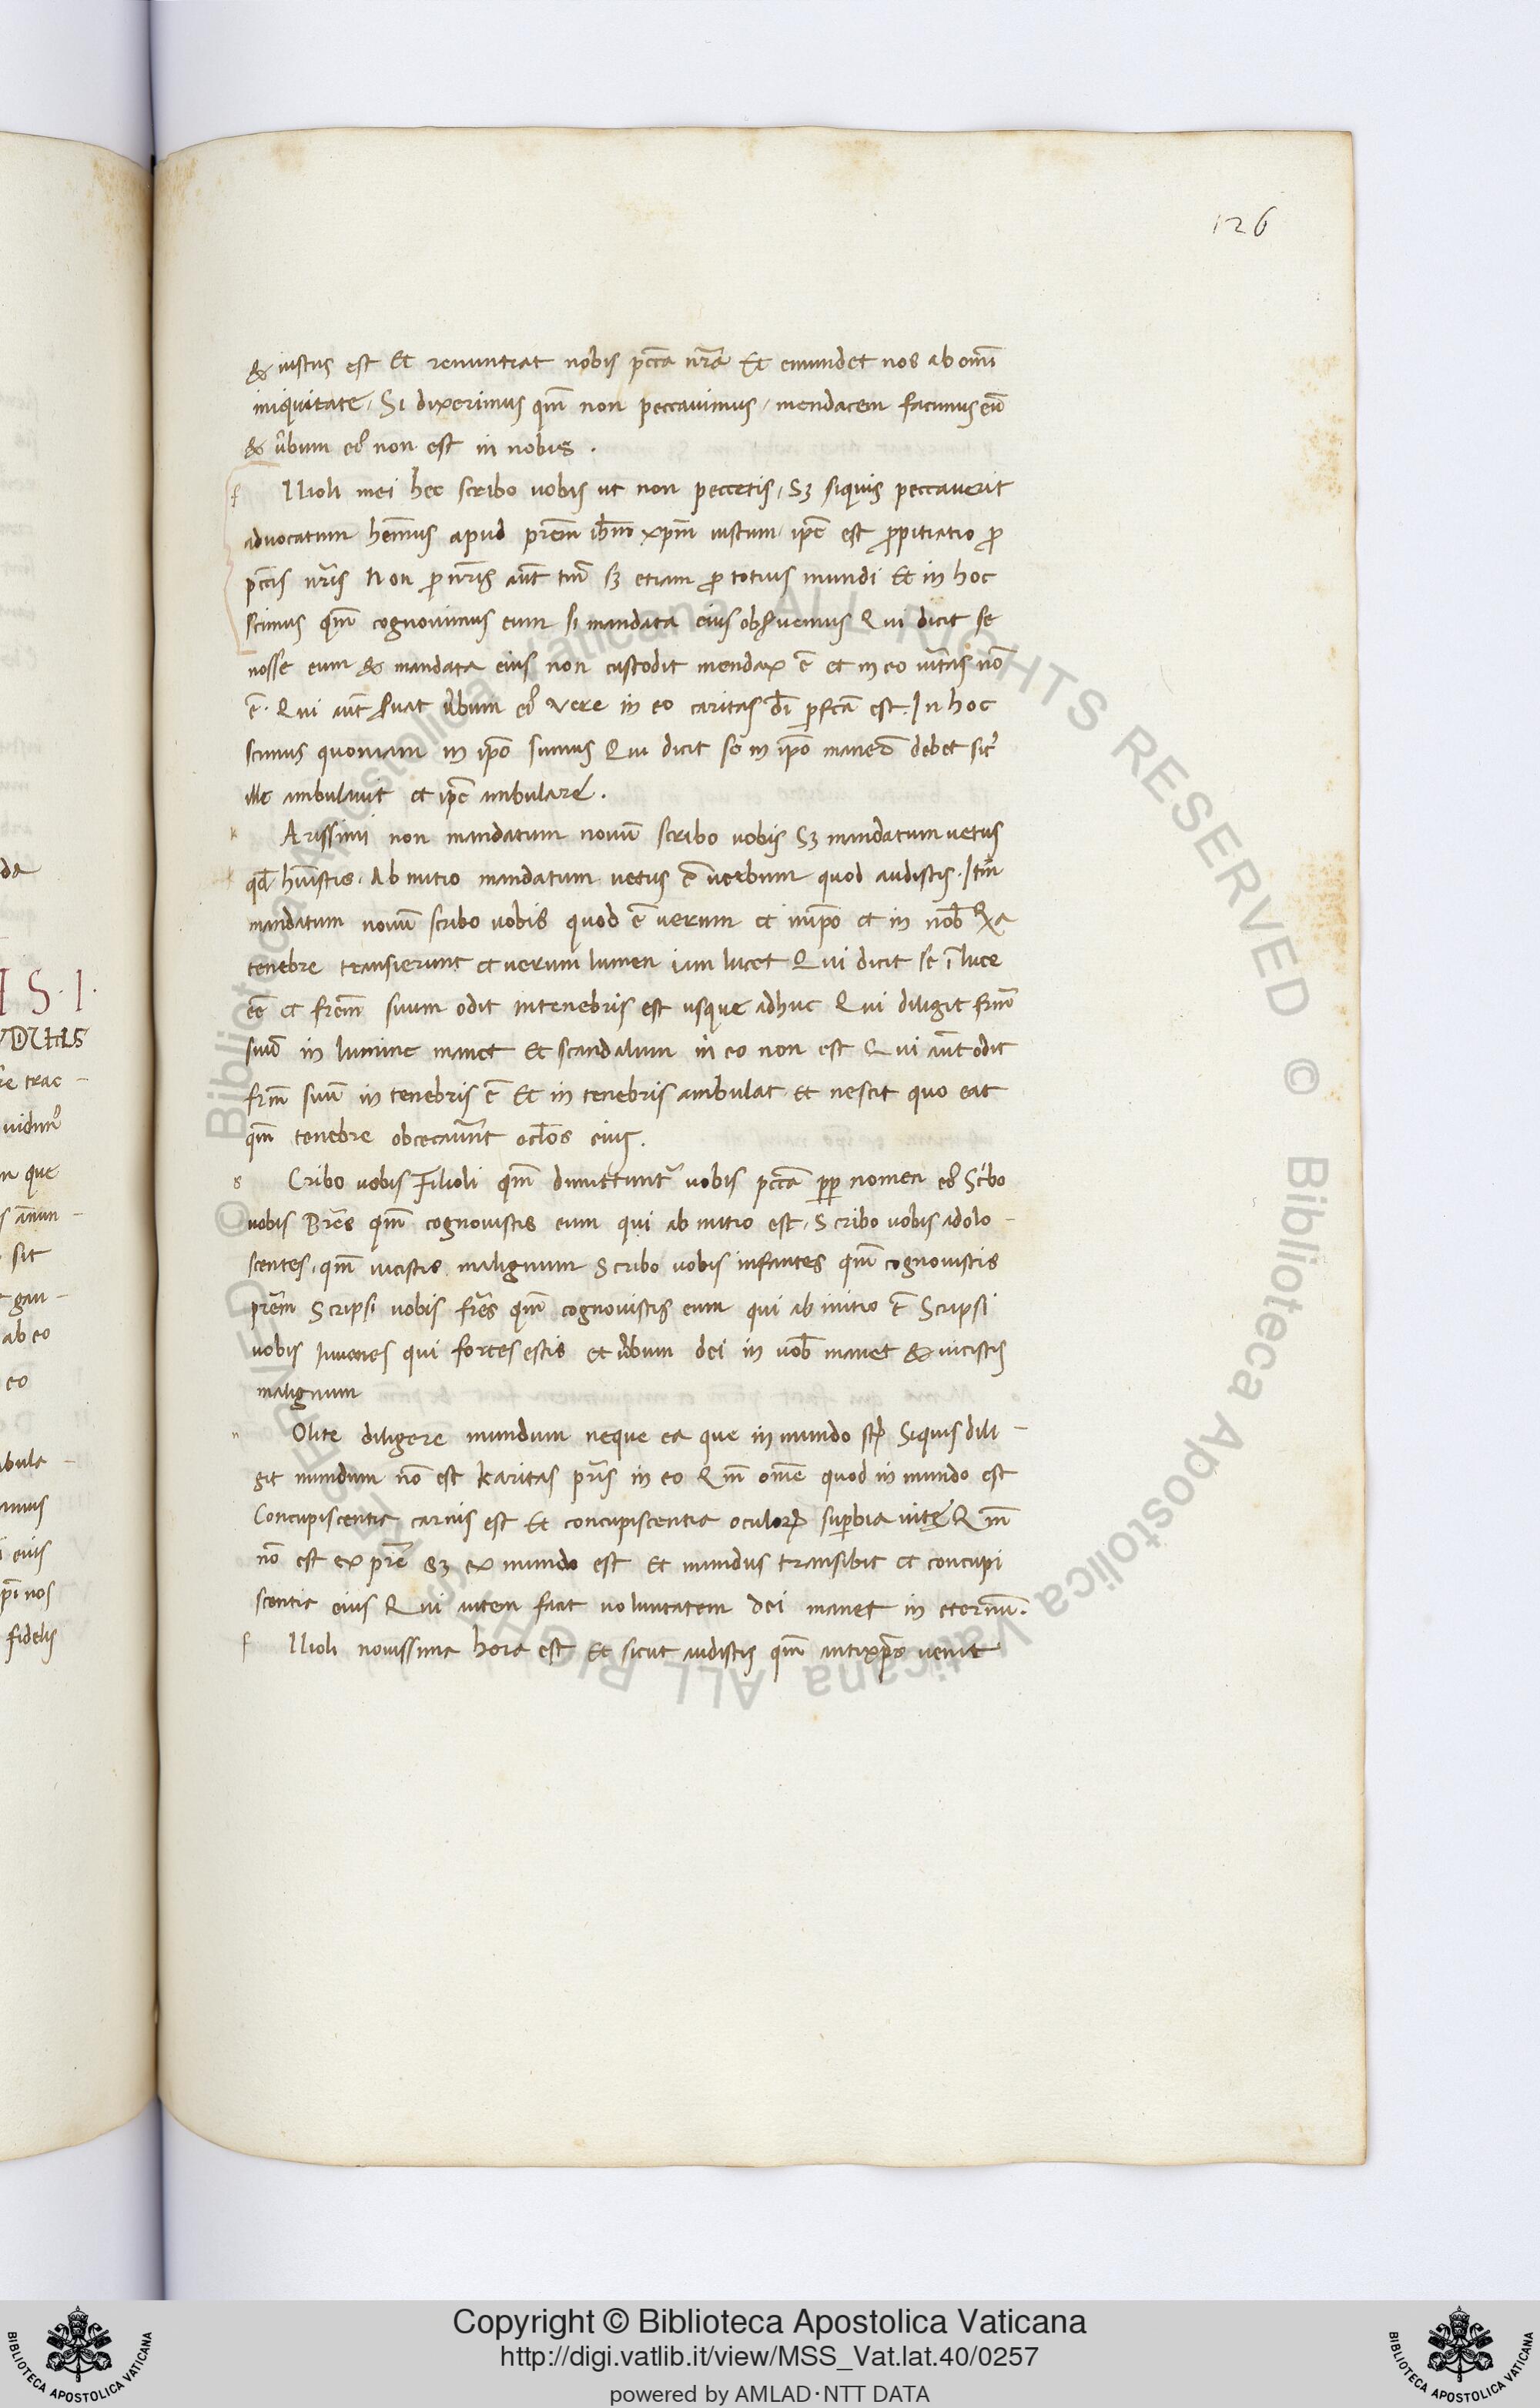 126
& iustus est Et renuntiat nobis pcc̄a nr̄a Et emundet nos ab omī
iniquitate. Si dixerimus qm̄ non peccauimus, mendacem facimus eū
& ūbum eiꝰ non est in nobis.
f Ilioli mei hec scribo uobis ut non peccetis, Sꝫ siquis peccauerit
aduocatum hem̄us apud prēm ihm̄ xpm̄ iustum ipē est ꝓpitiatio ꝓ
pcc̄is nr̄is Non ꝓ nr̄is aūt tm̄ sꝫ etiam ꝓ totius mundi Et in hoc
scimus qm̄ cognouimus eum si mandata eius obẜuemus Qui dicit se
nosse eum & mandata eius non custodit mendax ē et in eo uītas nō
ē. Qui aūt ẜuat ūbum eiꝰ vere in eo caritas dī ꝑfcā est. In hoc
scimus quoniam in ipō sumus Qui dicit se in ipō manere debet sic̄
ille ambulauit et ipē ambulare.
k Arissimi non mandatum nouū scribo uobis Sꝫ mandatum uetus
qd̄ hūistis. Ab initio mandatum uetus ē uerbum quod audistis. Itm̄
mandatum nouū scribo uobis quod ē uerum et inipō et in nob̄ Qa
tenebre transierunt et uerum lumen iam lucet Qui dicit se ī luce
eē et frēm suum odit intenebris est usque adhuc Qui diligit frm̄
suū in lumine manet Et scandalum in eo non est Qui aūt odit
frm̄ suū in tenebris ē Et in tenebris ambulat Et nescit quo eat
qm̄ tenebre obcecauert̄ oclōs eius.
s Cribo uobis Filioli qm̄ dimittunt̄ uobis pcc̄a ꝓp nomen eiꝰ Scͥbo
uobis Pr̄es qm̄ cognouistis eum qui ab initio est, Scribo uobis adole-
scentes, qm̄ uicistis malignum Scribo uobis infantes qm̄ cognouistis
prēm Scripsi uobis fr̄es qm̄ cognouistis eum qui ab initio ē Scripsi
uobis Iuuenes qui fortes estis et ūbum dei in uob̄ manet & uicistis
malignum
n Olite diligere mundum neque ea que in mundo st̄ Siquis dili-
git mundum nō est karitas pr̄is in eo Qm̄ omē quod in mundo est
Concupiscentia carnis est Et concupiscentia oculoꝝ suꝑbia uitę Qm̄
nō est ex prē sꝫ ex mundo est Et mundus transibit et concupi
scentia eius Qui autem facit uoluntatem dei manet in eternū.
f Ilioli nouissima hora est Et sicut audistis qm̄ antixpr̄s uenit
Copyright © Biblioteca Apostolica Vaticana
http://digi.vatlib.it/view/MSS_Vat.lat.40/0257
powered by AMLAD·NTT DATA